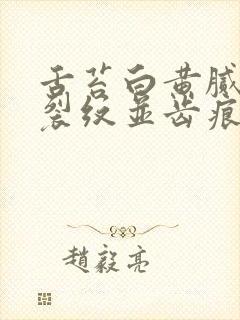 舌苔白黄腻
裂纹並齿痕
趙毅亮